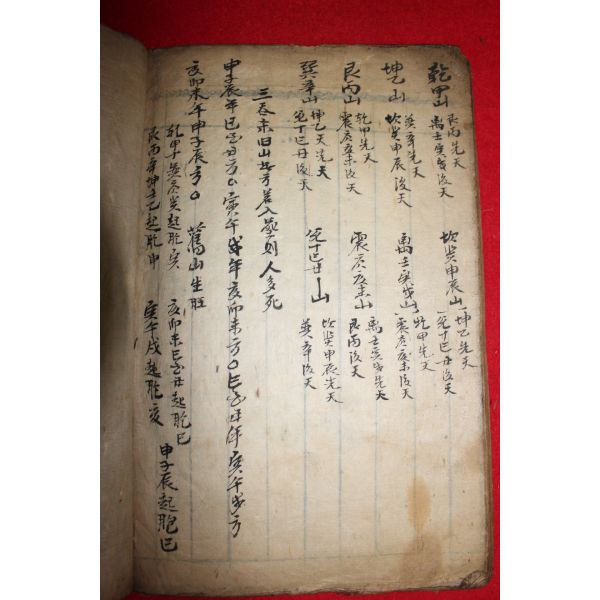 乾甲山 艮丙先天 离壬寅戌後天 坎癸申辰山 坤乙先天 兌丁巳丑後天
坤乙山 巽辛先天 坎癸申辰後天 离壬寅戌山 乾甲先天 震庚亥未後天
艮丙山 乾甲先天 震庚亥未後天 震庚亥未山 离壬寅戌先天 艮丙後天
巽辛山 坤乙先天 兌丁巳丑後天 兌丁巳丑山 坎癸申辰先天 巽辛後天
三 未旧山 方 入 則人多死
申子辰年巳酉丑方〇寅午戌年亥卯未方〇巳酉丑年寅午戌方
亥卯未年申子辰方〇 舊山生旺
乾甲子 起胞寅 亥卯未巳酉丑起胞巳
艮丙辛坤壬乙起胞申 寅午戌起胞亥 申子辰起胞巳